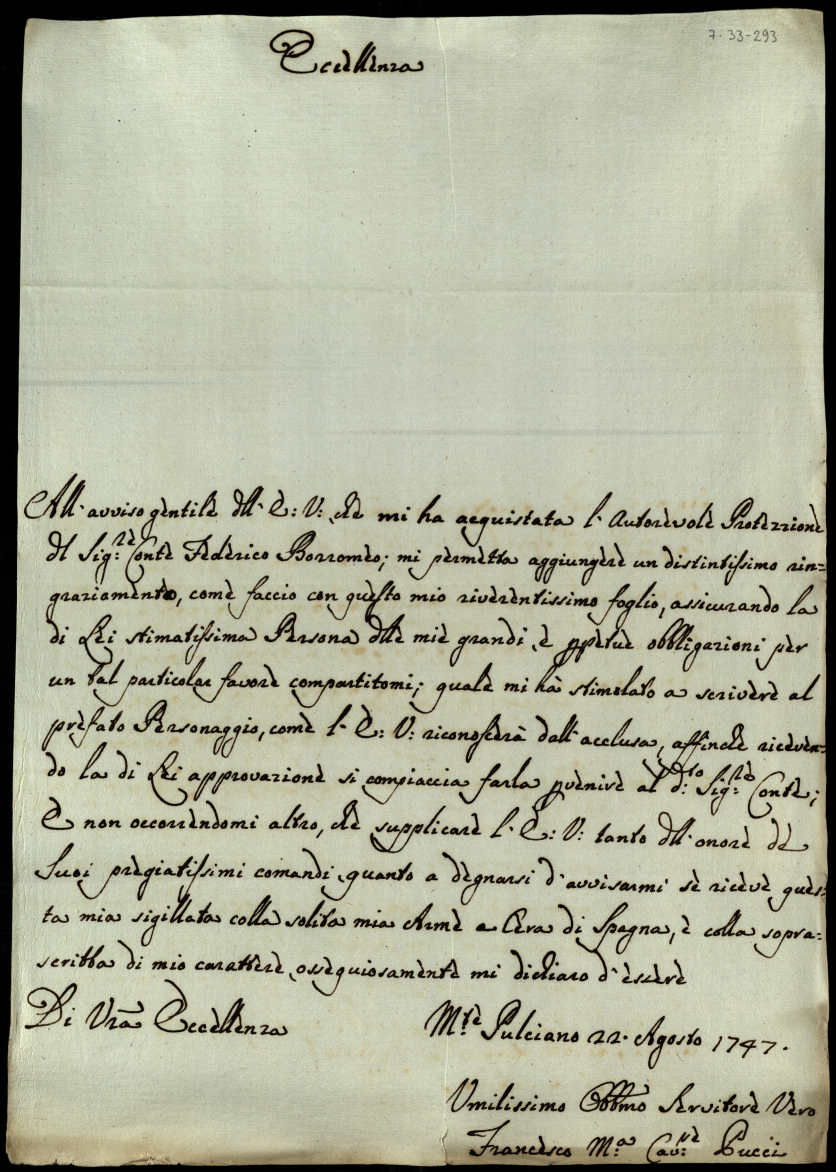 7. 33-293
Eccellenza
All'avviso gentile dll'E: V: che mi ha acquistata l'Autorevole Protezzione
dl Sig:re Conte Federico Borromeo; mi permetta aggiungere un distintissimo rin=
graziamento, come faccio con questo mio riverentissimo foglio, assicurando la
di Lei stimatissima Persona dlle mie grandi, e ppetue obbligazioni per
un tal particolar favore compartitomi; quale mi hà stimolato a scrivere al
prefato Personaggio, come l'E: V: riconoscerà dall'acclusa, affinche riceven=
do la di Lei approvazione si compiaccia farla pvenire al d:to Sig:re Conte;
E non occorrendomi altro, che supplicare l'E: V: tanto dll'onore de
Suoi pregiatissimi comandi, quanto a degnarsi d'avvisarmi se riceve ques=
ta mia sigillata colla solita mia Arme a Cera di Spagna, e colla sopra=
scritta di mio carattere, ossequiosamente mi dichiaro d'essere
Di Vra Eccellenza
M:te Pulciano 22. Agosto 1747.
Umilissimo Obbmo Servitore Vero
Francesco M:a Cav:re Pucci